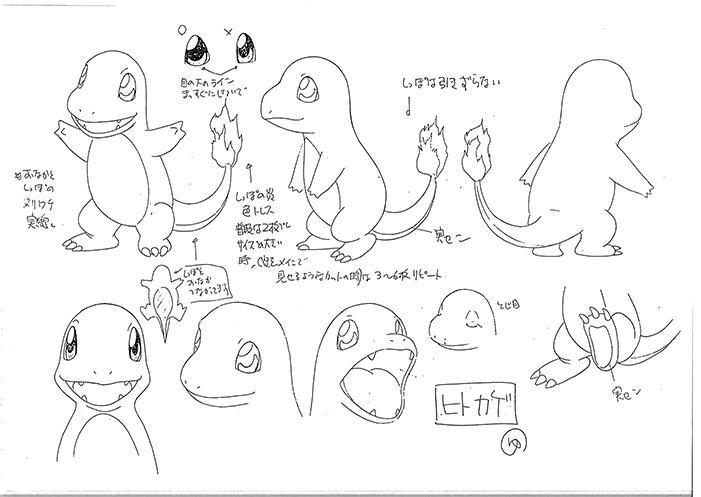 ○ ×
目の下のライン
まっすぐにしないで
しっぽは引きずらない
*おなかと
しっぽの
ヌリワケ
実線。
しっぽの炎
色トレス
普段は2枚
サイズ大で
時
見せるようなカットの時は 3〜6枚リピート
実セン
しっぽと
おなか
つながってます
とじ目
実セン
ヒトカゲ
ゆ